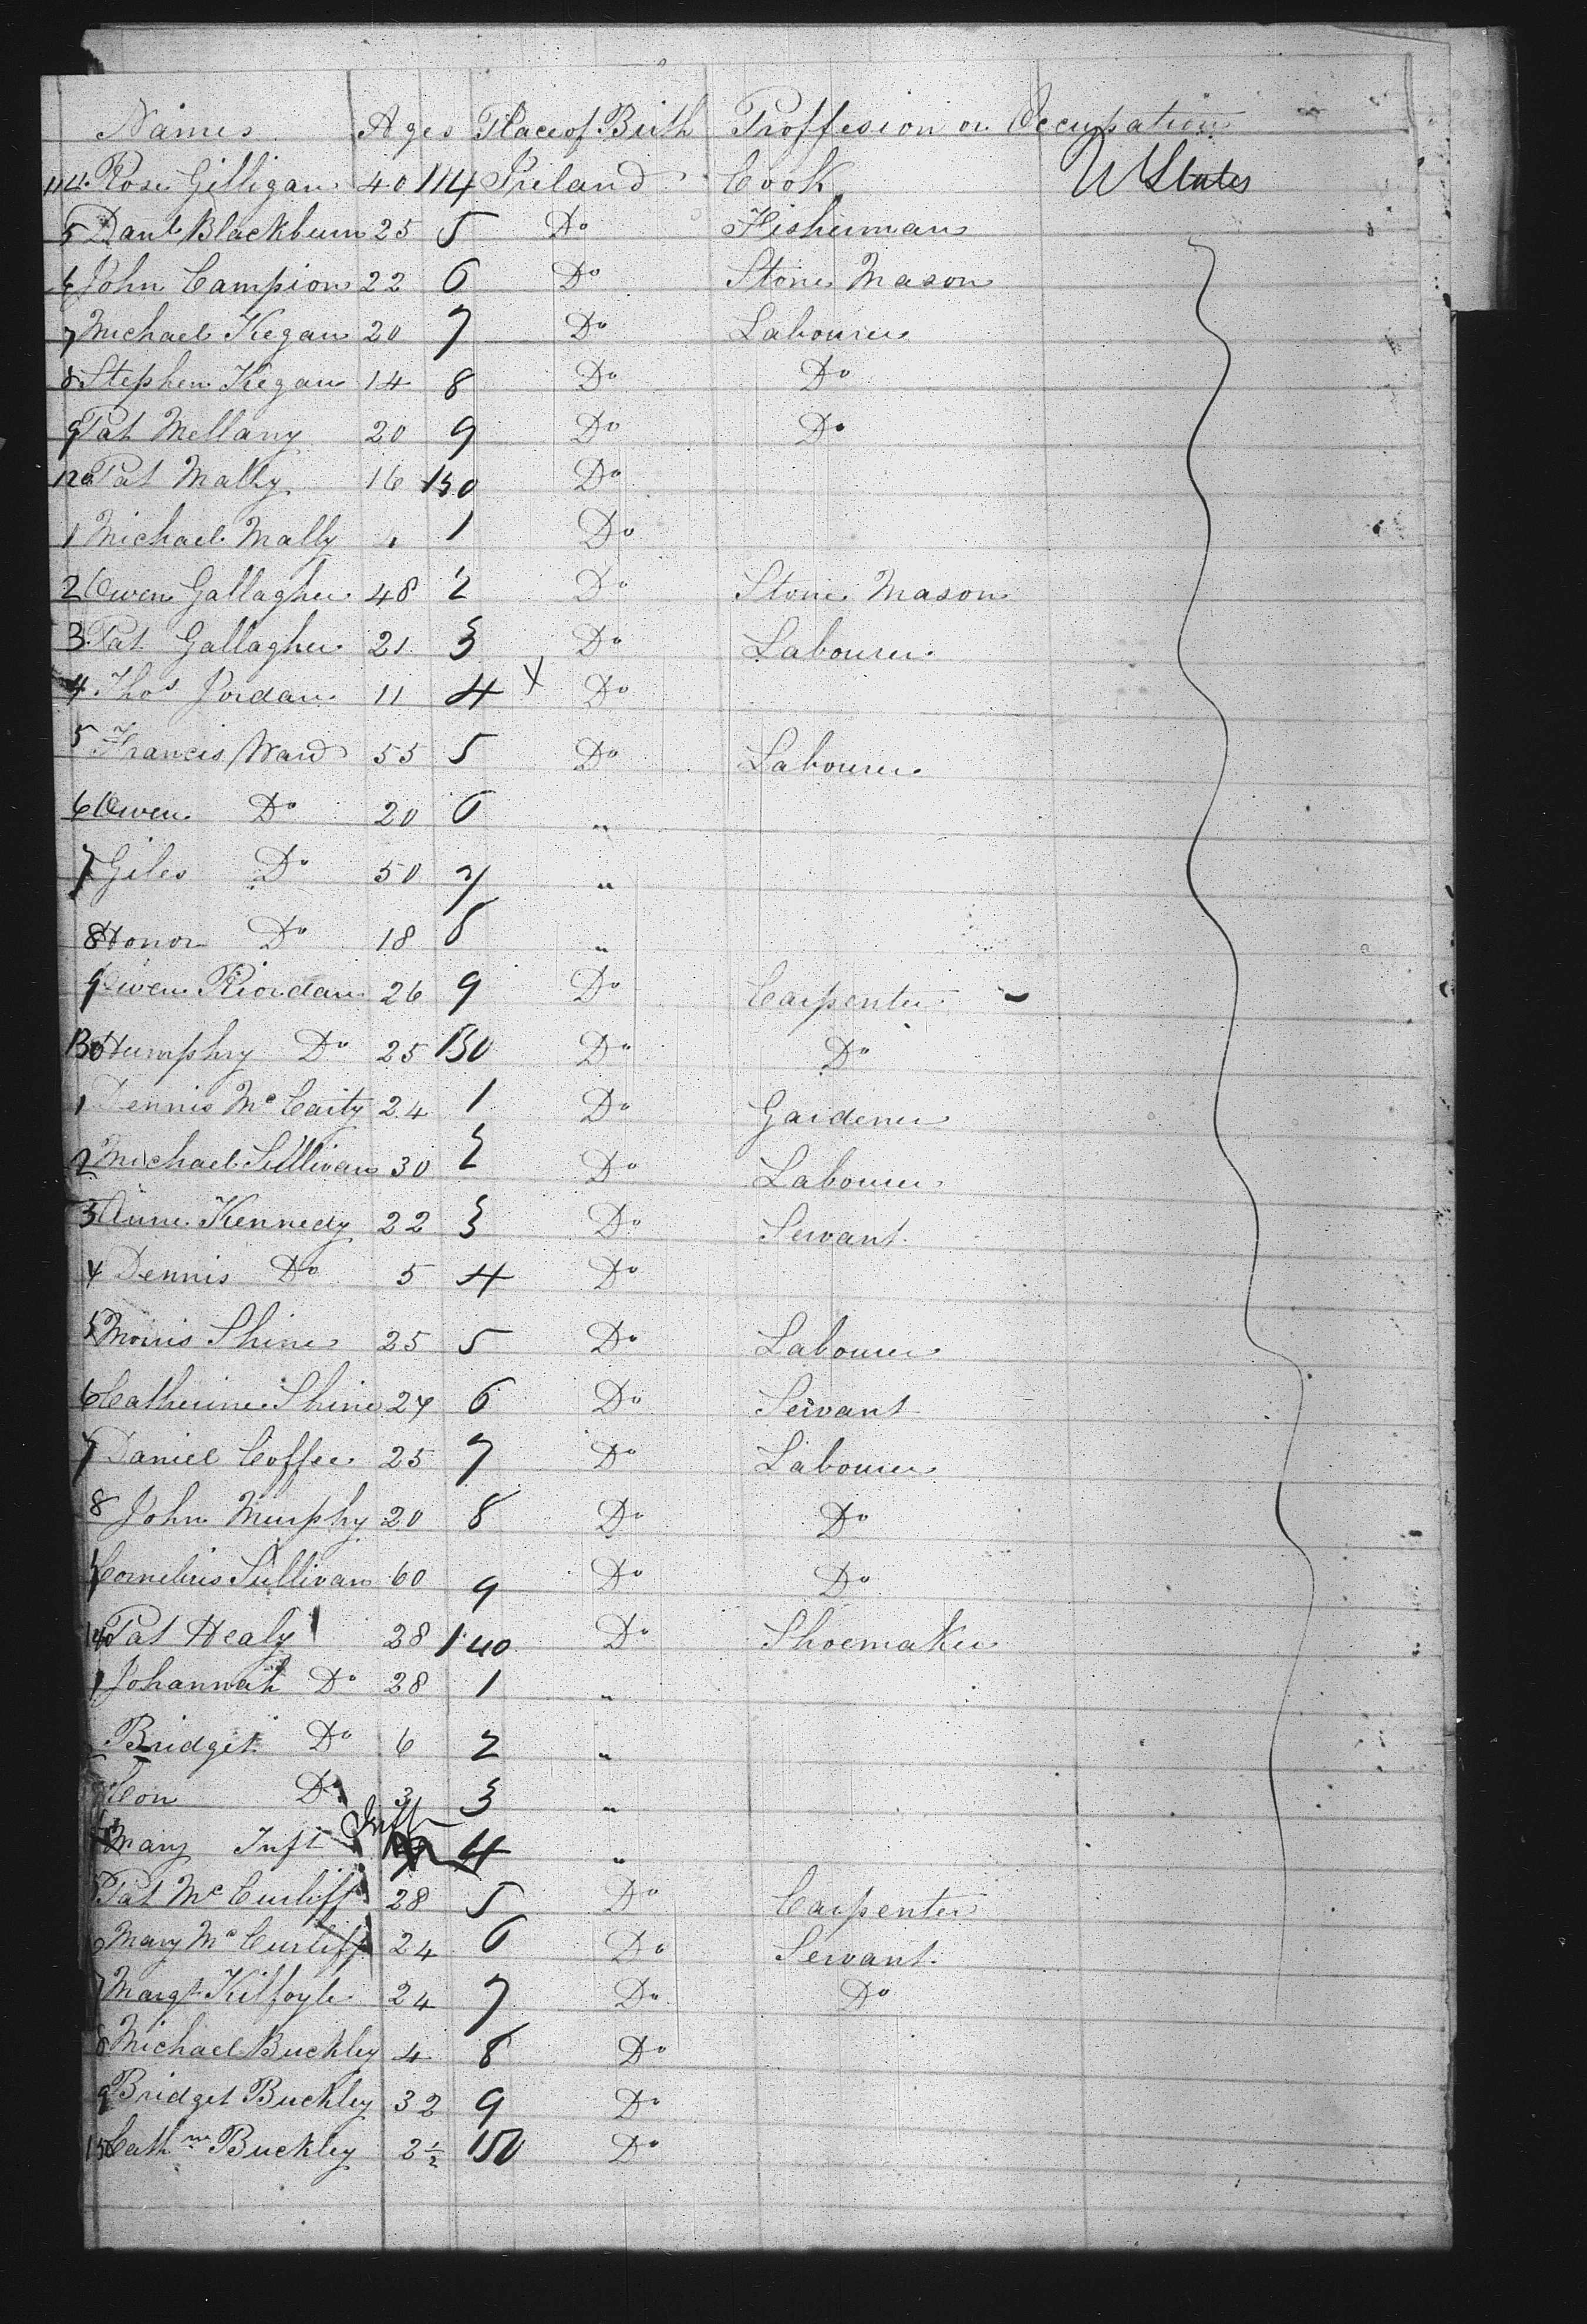 Names Ages Place of Birth Proffesion or Occupation
114. Rose Gilligan 40 114 Ireland Cook U States
5 Danl Blackburn 25 5 Do Fisherman
6 John Campion 22 6 Do Stone Mason
7 Michael Kegan 20 7 Do Labourer
8 Stephen Kegan 14 8 Do Do
9 Pat Mellany 20 9 Do Do
120 Pat Mally 16 Do
1 Michael Mally 4 1 Do
2 Owen Gallagher 48 2 Do Stone Mason
3 Pat Gallagher 21 3 Do Labourer
4 Thos Jordan 11 4 X Do
5 Francis Ward 55 5 Do Labourer
6 Owen Do 20 6 "
7 Giles Do 50 7 "
8 Honor Do 18 8 "
9 Owen Riordan 26 9 Do Carpenter
130 Humphry Do 25 130 Do Do
1 Dennis Mc Carty 24 1 Do Gardener
2 Michael Sullivan 30 2 Do Labourer
3 Anne Kennedy 22 3 Do Servant
4 Dennis Do 5 4 Do
5 Morris Shine 25 5 Do Labourer
6 Catherine Shine 24 6 Do Servant
7 Daniel Coffee 25 7 Do Labourer
8 John Murphy 20 8 Do Do
9 Cornelius Sullivan 60 9 Do Do
140 Pat Healy 28 140 Do Shoemaker
1 Johannah Do 28 1 "
Bridget Do 6 2 "
Con Do 3 3 "
Mary Inft Inft 4 "
Pat Mc 28 5 Do Carpenter
Mary Mc 24 6 Do Servant
7 Margt Kilfoyle 24 7 Do Do
8 Michael Buckley 4 8 Do
9 Bridget Buckley 32 9 Do
150 Cathne Buckley 2½ 150 Do